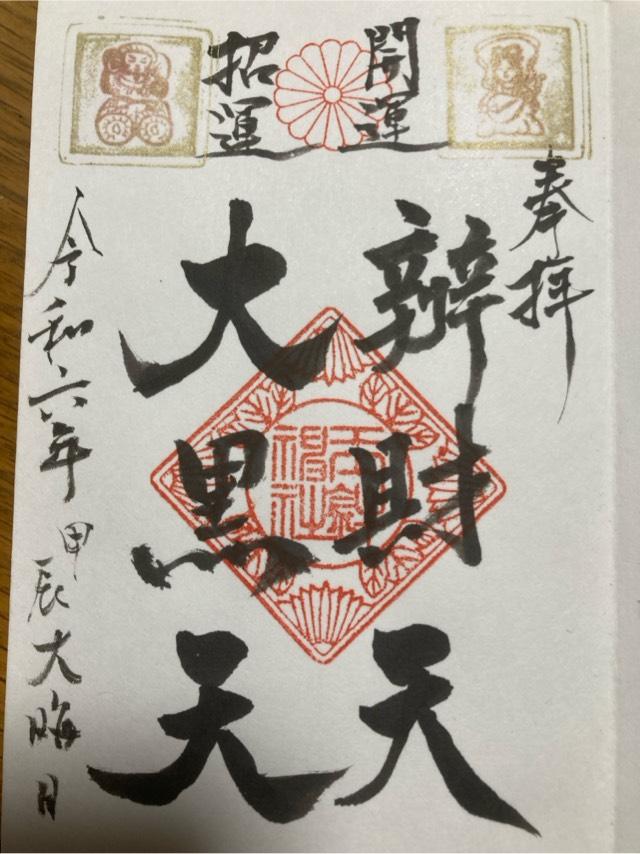 奉拝
開運
招運
辨財天
大黒天
令和六年甲辰大晦日